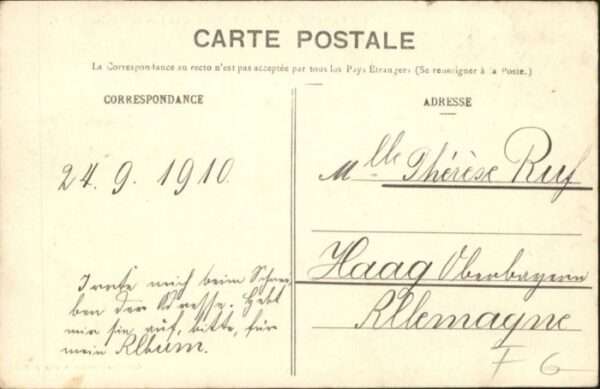 CARTE POSTALE
La Correspondance au recto n'est pas acceptée par tous les Pays Étrangers (Se renseigner à la Poste.)
CORRESPONDANCE
ADRESSE
24. 9. 1910.
Mlle Thérèse Ruf
Haag Oberbayern
Allemagne
Irrte mich beim Schrei-
ben der Adresse. Hebt
mir sie auf, bitte, für
mein Album.
F 6